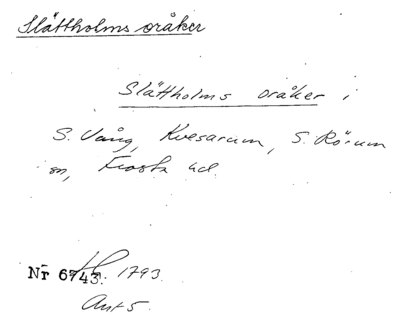 Slättholms oråker
Slättholms oråker i
S. Vång, Kvesarum, S. Rörum
sn, Frosta hd.
Nr 6743. 1793.
Ant 5.